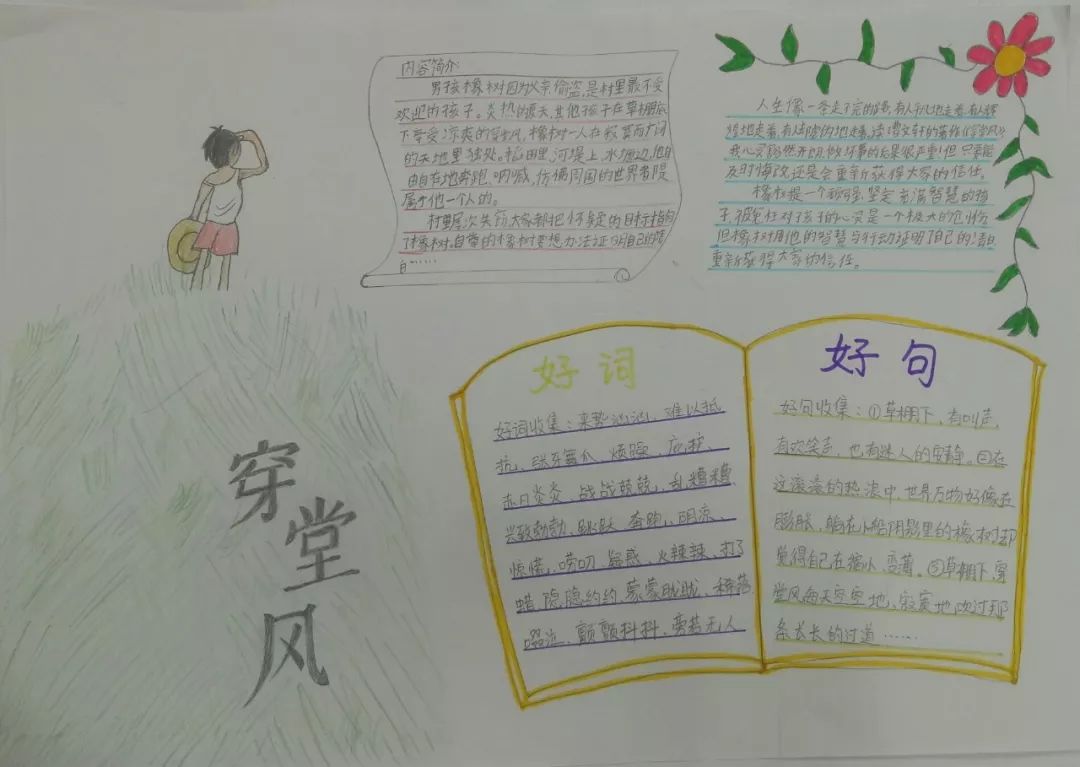 内容简介
男孩橡树因为父亲偷盗,是村里最不受
欢迎的孩子。炎热的夏天,其他孩子在草棚底
下享受凉爽的穿堂风,橡树一人在寂寞而广阔
的天地里独处。稻田里,河堤上,水塘边,他自
由自在地奔跑、呐喊,仿佛周围的世界都是
属于他一个人的。
村里屡次失窃,大家都把怀疑的目标指向
了橡树,自尊的橡树要想办法证明自己的清
白……
人生像一条走不完的路,有人
地走着,
我心灵豁然开朗,做坏事的后果很严重!但只要能
及时悔改还是会重新获得大家的信任。
橡树是一个顽强、坚定、充满智慧的孩
子,被冤枉对孩子的心灵是一个极大的伤害,
但橡树用他的智慧与行动证明了自己的清白
重新获得大家的信任。
好词
好词收集:来势汹汹、难以抵
抗、张牙舞爪、烦躁、庇护、
赤日炎炎、战战兢兢、乱糟糟、
兴致勃勃、跳跃、奔跑、阴凉、
惊慌、唠叨、疑惑、火辣辣、打了
蜡、隐隐约约、蒙蒙眬眬、稀落、
啜泣、颤颤抖抖、旁若无人
好句
好句收集:①草棚下,有叫声,
有欢笑声,也有迷人的安静。②在
这滚滚的热浪中,世界万物好像在
膨胀,躺在小船阴影里的橡树却
觉得自己在缩小、变薄。③草棚下,穿
堂风每天空空地、寂寞地吹过那
条长长的过道……
穿堂风